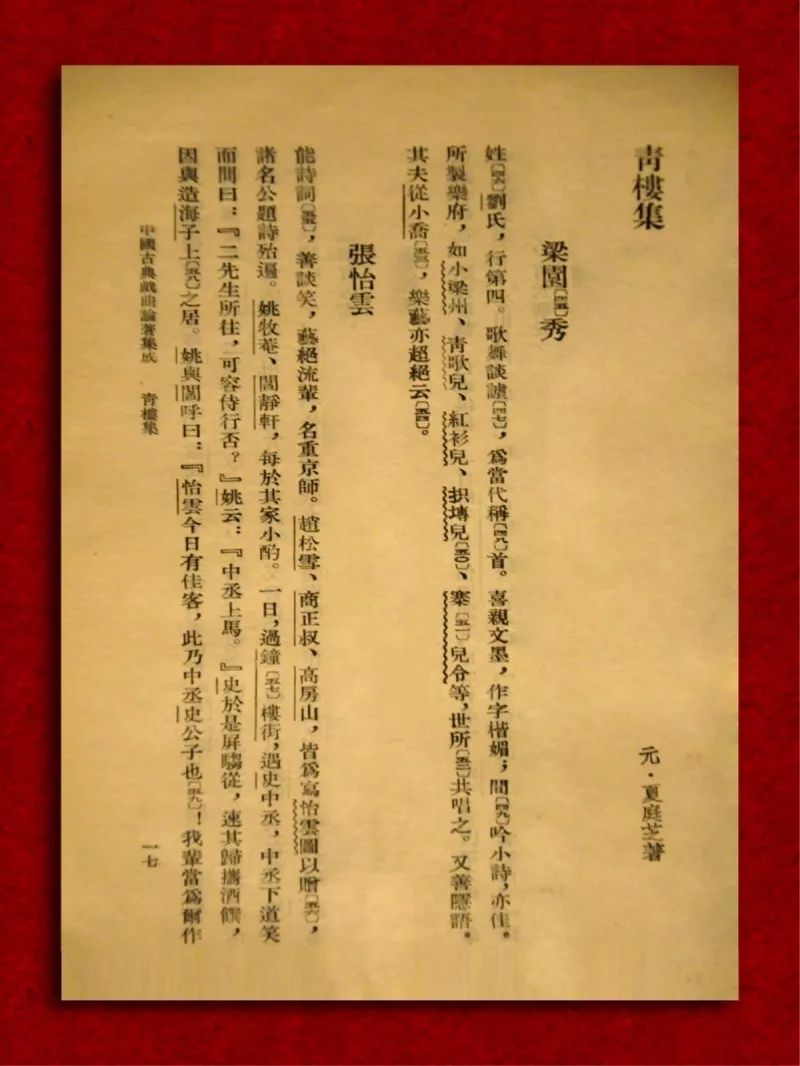 靑樓集
元·夏庭芝著
梁園〔四五〕秀
姓〔四六〕劉氏，行第四。歌舞談謔〔四七〕，爲當代稱〔四八〕首。喜親文墨，作字楷媚；間〔四九〕吟小詩，亦佳。
所製樂府，如小梁州、靑歌兒、紅衫兒、抧塼兒〔五〇〕、寨〔五一〕兒令等，世所〔五二〕共唱之。又善隱語。
其夫從小喬〔五三〕，樂藝亦超絕云〔五四〕。
張怡雲
能詩詞〔五五〕，善談笑，藝絕流輩，名重京師。趙松雪、商正叔、高房山，皆爲寫怡雲圖以贈〔五六〕，
諸名公題詩殆遍。姚牧菴、閻靜軒，每於其家小酌。一日，過鐘〔五七〕樓街，遇史中丞，中丞下道笑
而問曰：『二先生所往，可容侍行否？』姚云：『中丞上馬。』史於是屏騶從，速其歸攜酒饌，
因與造海子上〔五八〕之居。姚與閻呼曰：『怡雲今日有佳客，此乃中丞史公子也〔五九〕！我輩當爲爾作
中國古典戲曲論著集成　靑樓集　一七